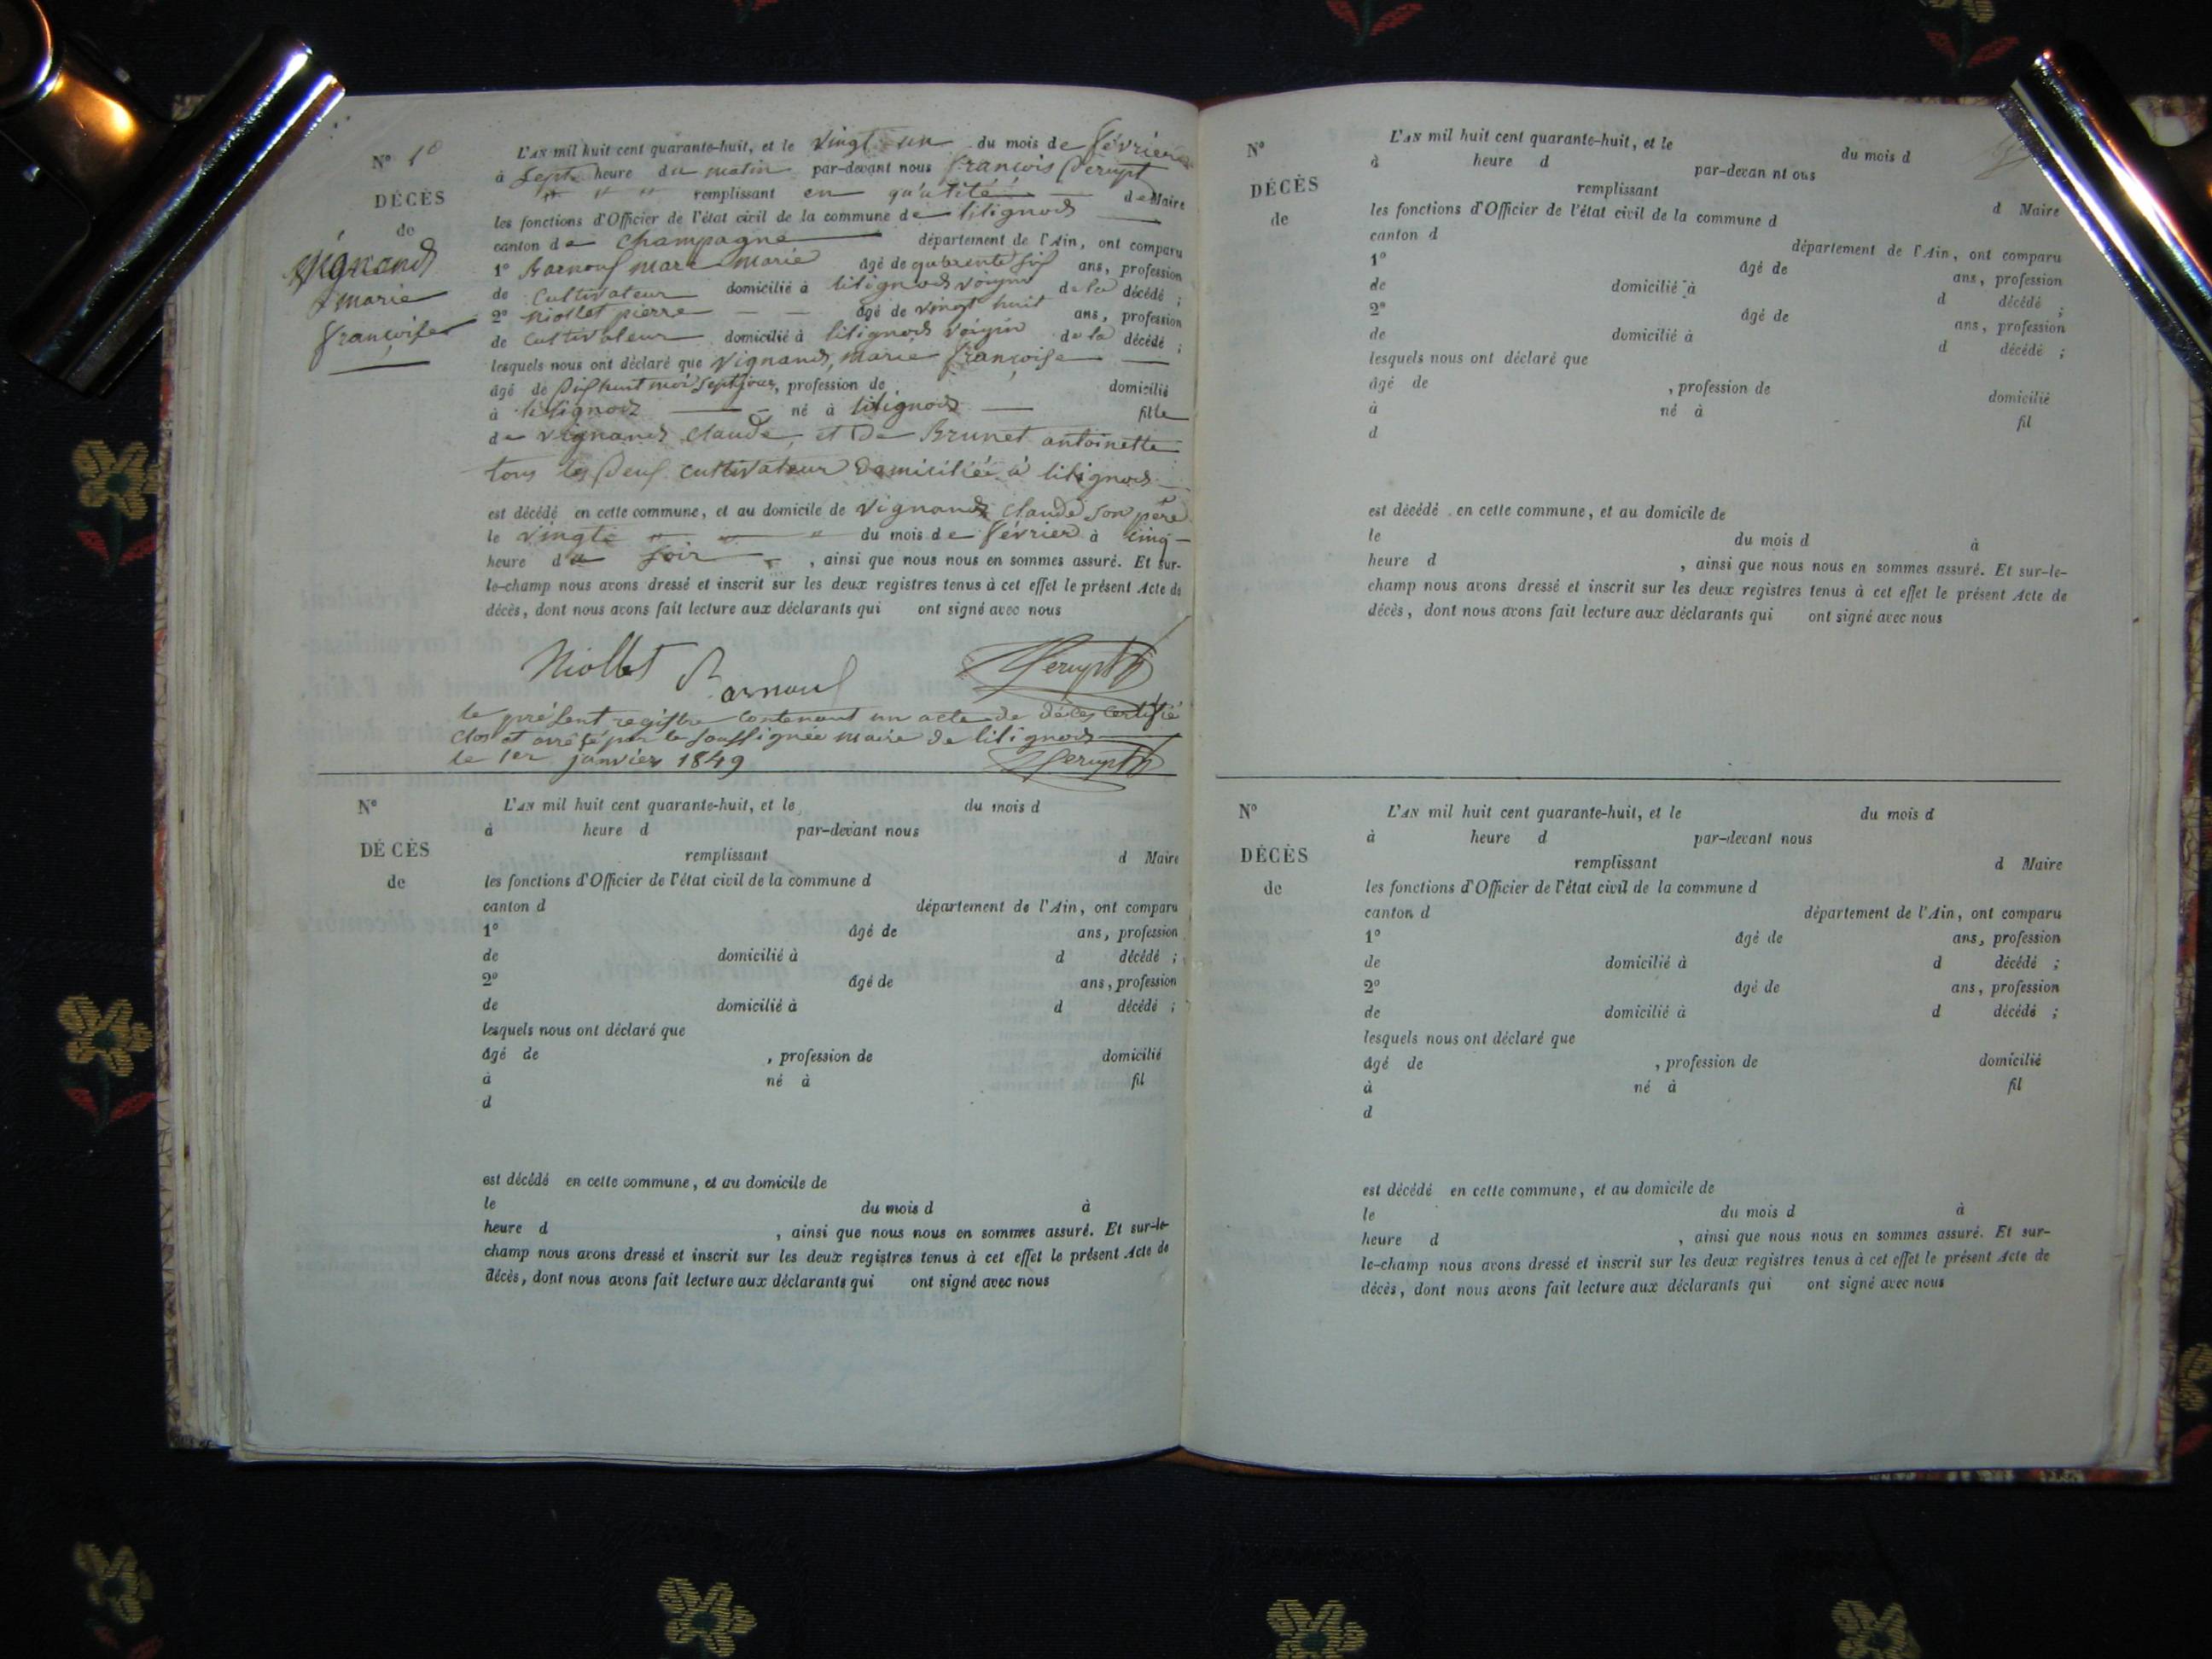 Nº 1º
DÉCÈS
de
Vignand
marie
françoise
L'AN mil huit cent quarante-huit, et le vingt un du mois de février
à sept heure du matin par-devant nous françois
" " " remplissant en qu'alité de Maire
les fonctions d'Officier de l'état civil de la commune de lilignod
canton de Champagne département de l'Ain, ont comparu
1º marc marie âgé de quarente six ans, profession
de Cultivateur domicilié à lilignod voisin de la décédé ;
2º Niollet pierre âgé de vingt huit ans, profession
de Cultivateur domicilié à lilignod voisin de la décédé ;
lesquels nous ont déclaré que Vignand, marie françoise
âgé de huit moi sept jour, profession de domicilié
à lilignod né à lilignod fille
de vignand claude, et De Brunet antoinette
tous les deux cultivateur Domiciliée à lilignod
est décédé en cette commune, et au domicile de Vignand claude son père
le vingt " " " du mois de février à cinq
heure du soir , ainsi que nous nous en sommes assuré. Et sur-
le-champ nous avons dressé et inscrit sur les deux registres tenus à cet effet le présent Acte de
décès, dont nous avons fait lecture aux déclarants qui ont signé avec nous
Niollet
le présent registre contenant un acte de décès certifié
clos et arrêté par le soussignée maire de lilignod
le 1er janvier 1849
Nº
DÉCÈS
de
L'AN mil huit cent quarante-huit, et le du mois d
à heure d par-devant nous
remplissant d Maire
les fonctions d'Officier de l'état civil de la commune d
canton d département de l'Ain, ont comparu
1º âgé de ans, profession
de domicilié à d décédé ;
2º âgé de ans, profession
de domicilié à d décédé ;
lesquels nous ont déclaré que
âgé de , profession de domicilié
à né à fil
d
est décédé en cette commune, et au domicile de
le du mois d à
heure d , ainsi que nous nous en sommes assuré. Et sur-le-
champ nous avons dressé et inscrit sur les deux registres tenus à cet effet le présent Acte de
décès, dont nous avons fait lecture aux déclarants qui ont signé avec nous
Nº
DÉCÈS
de
L'AN mil huit cent quarante-huit, et le du mois d
à heure d par-devan nt ous
remplissant d Maire
les fonctions d'Officier de l'état civil de la commune d
canton d département de l'Ain, ont comparu
1º âgé de ans, profession
de domicilié à d décédé ;
2º âgé de ans, profession
de domicilié à d décédé ;
lesquels nous ont déclaré que
âgé de , profession de domicilié
à né à fil
d
est décédé en cette commune, et au domicile de
le du mois d à
heure d , ainsi que nous nous en sommes assuré. Et sur-le-
champ nous avons dressé et inscrit sur les deux registres tenus à cet effet le présent Acte de
décès, dont nous avons fait lecture aux déclarants qui ont signé avec nous
Nº
DÉCÈS
de
L'AN mil huit cent quarante-huit, et le du mois d
à heure d par-devant nous
remplissant d Maire
les fonctions d'Officier de l'état civil de la commune d
canton d département de l'Ain, ont comparu
1º âgé de ans, profession
de domicilié à d décédé ;
2º âgé de ans, profession
de domicilié à d décédé ;
lesquels nous ont déclaré que
âgé de , profession de domicilié
à né à fil
d
est décédé en cette commune, et au domicile de
le du mois d à
heure d , ainsi que nous nous en sommes assuré. Et sur-
le-champ nous avons dressé et inscrit sur les deux registres tenus à cet effet le présent Acte de
décès, dont nous avons fait lecture aux déclarants qui ont signé avec nous